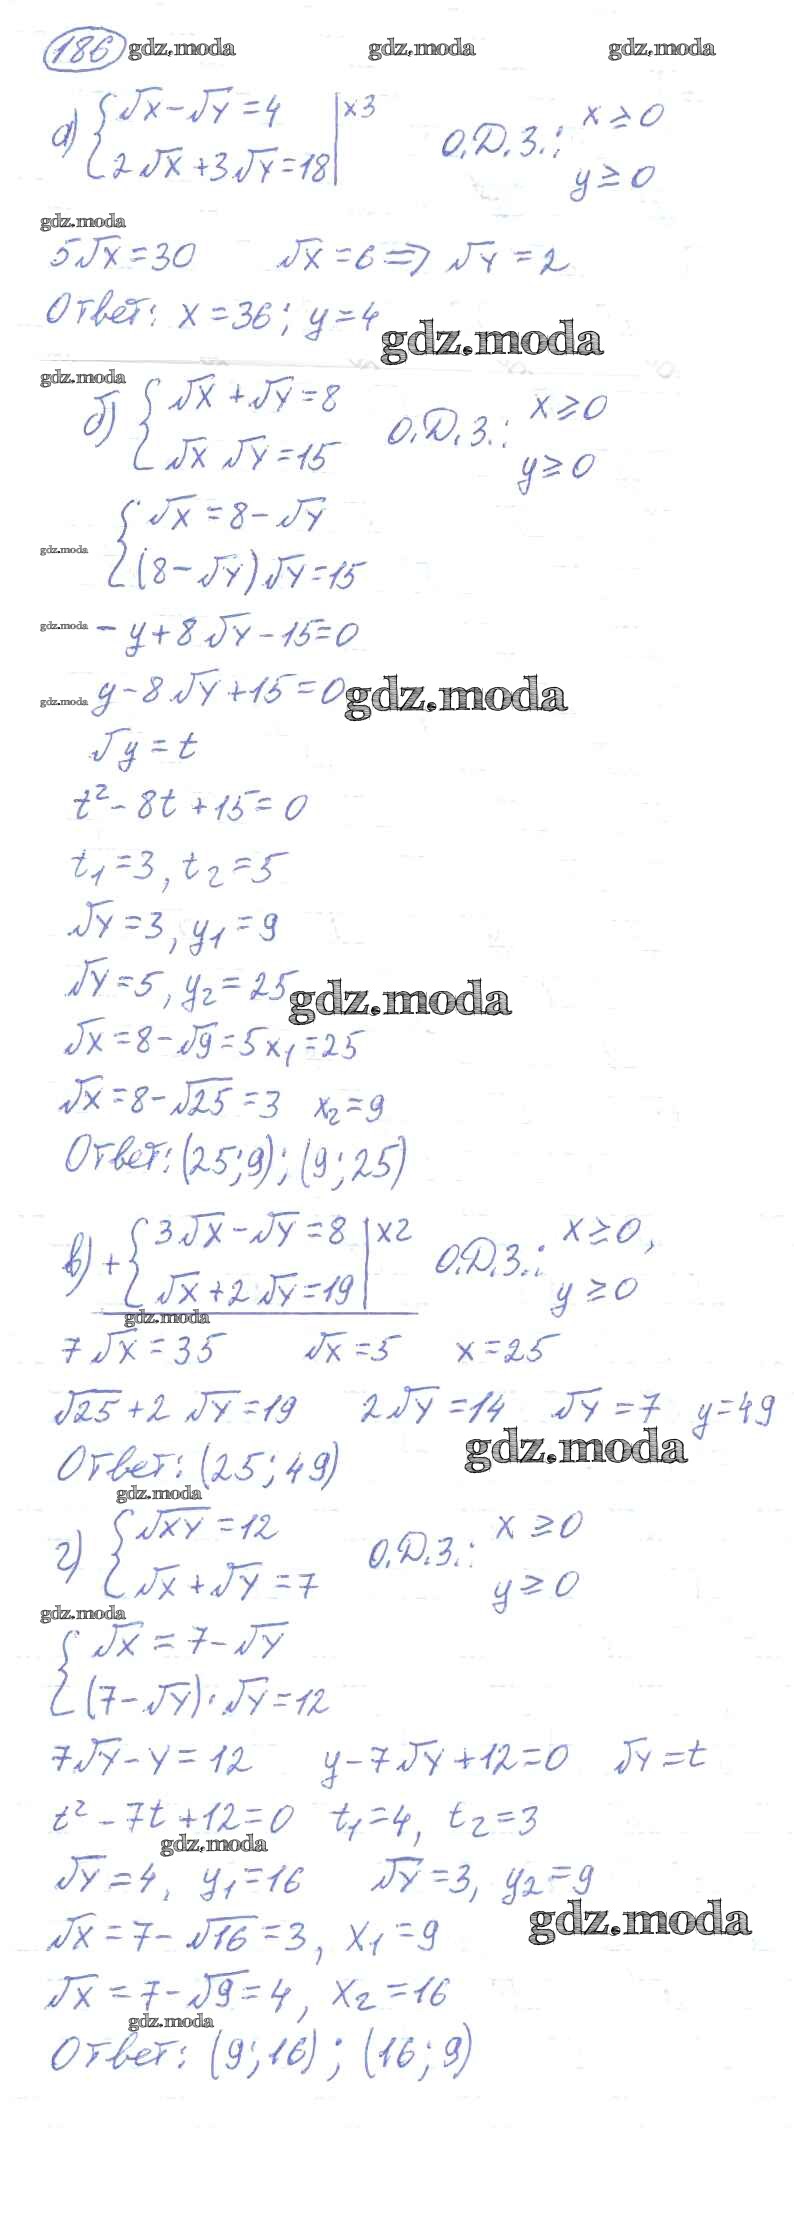 186 gdz.moda gdz.moda gdz.moda
а) { √x - √y = 4 | x3
2√x + 3√y = 18 О.Д.З.: x ≥ 0
y ≥ 0
gdz.moda
5√x = 30 √x = 6 ⇒ √y = 2
Ответ: x = 36; y = 4
gdz.moda
gdz.moda
б) { √x + √y = 8
√x √y = 15 О.Д.З.: x ≥ 0
y ≥ 0
{ √x = 8 - √y
gdz.moda
(8 - √y)√y = 15
gdz.moda - y + 8√y - 15 = 0
gdz.moda y - 8√y + 15 = 0 gdz.moda
√y = t
t² - 8t + 15 = 0
t₁ = 3, t₂ = 5
√y = 3, y₁ = 9
√y = 5, y₂ = 25 gdz.moda
√x = 8 - √9 = 5 x₁ = 25
√x = 8 - √25 = 3 x₂ = 9
Ответ: (25; 9); (9; 25)
в) + { 3√x - √y = 8 | x2
√x + 2√y = 19 О.Д.З.: x ≥ 0,
y ≥ 0
gdz.moda
7√x = 35 √x = 5 x = 25
√25 + 2√y = 19 2√y = 14 √y = 7 y = 49
Ответ: (25; 49) gdz.moda
gdz.moda
г) { √xy = 12
√x + √y = 7 О.Д.З.: x ≥ 0
y ≥ 0
gdz.moda
{ √x = 7 - √y
(7 - √y) · √y = 12
7√y - y = 12 y - 7√y + 12 = 0 √y = t
t² - 7t + 12 = 0 t₁ = 4, t₂ = 3
gdz.moda
√y = 4, y₁ = 16 √y = 3, y₂ = 9
gdz.moda
√x = 7 - √16 = 3, x₁ = 9
√x = 7 - √9 = 4, x₂ = 16
gdz.moda
Ответ: (9; 16); (16; 9)